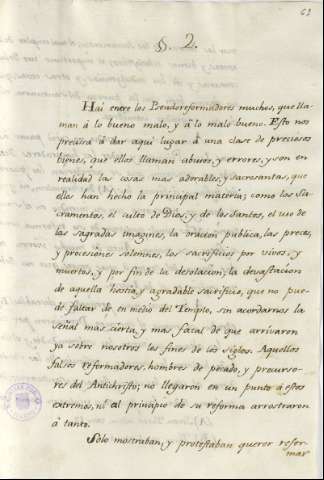 62
§. 2.
Hai entre los Pseudoreformadores muchos, que lla-
man â lo bueno malo, y â lo malo bueno. Esto nos
precisa â dar aqui lugar â una clase de preciosos
bienes, que ellos llaman abusos, y errores, y son en
realidad las cosas mas adorables, y sacrosantas, que
ellos han hecho la principal materia; como los Sa-
cramentos, el culto de Dios, y de los Santos, el uso de
las sagradas imagines, la oracion publica, las preces,
y procesiones solemnes, los sacrificios por vivos, y
muertos, y por fin de la desolacion; la devastacion
de aquella hostia, y agradable sacrificio, que no pue-
de faltar de en medio del Templo, sin acordarnos la
señal mas cierta, y mas fatal de que arrivaron
ya sobre nosotros los fines de los siglos. Aquellos
falsos reformadores, hombres de pecado, y precurso-
res del Antichristo; no llegaron en un punto â estos
extremos, ni al principio de su reforma arrostraron
â tanto.
Solo mostraban, y protestaban querer refor-
mar